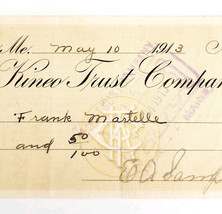 Me. May 10 1913
Kineo Trust Compan
Frank Martelle
and 50/100
E A Samp